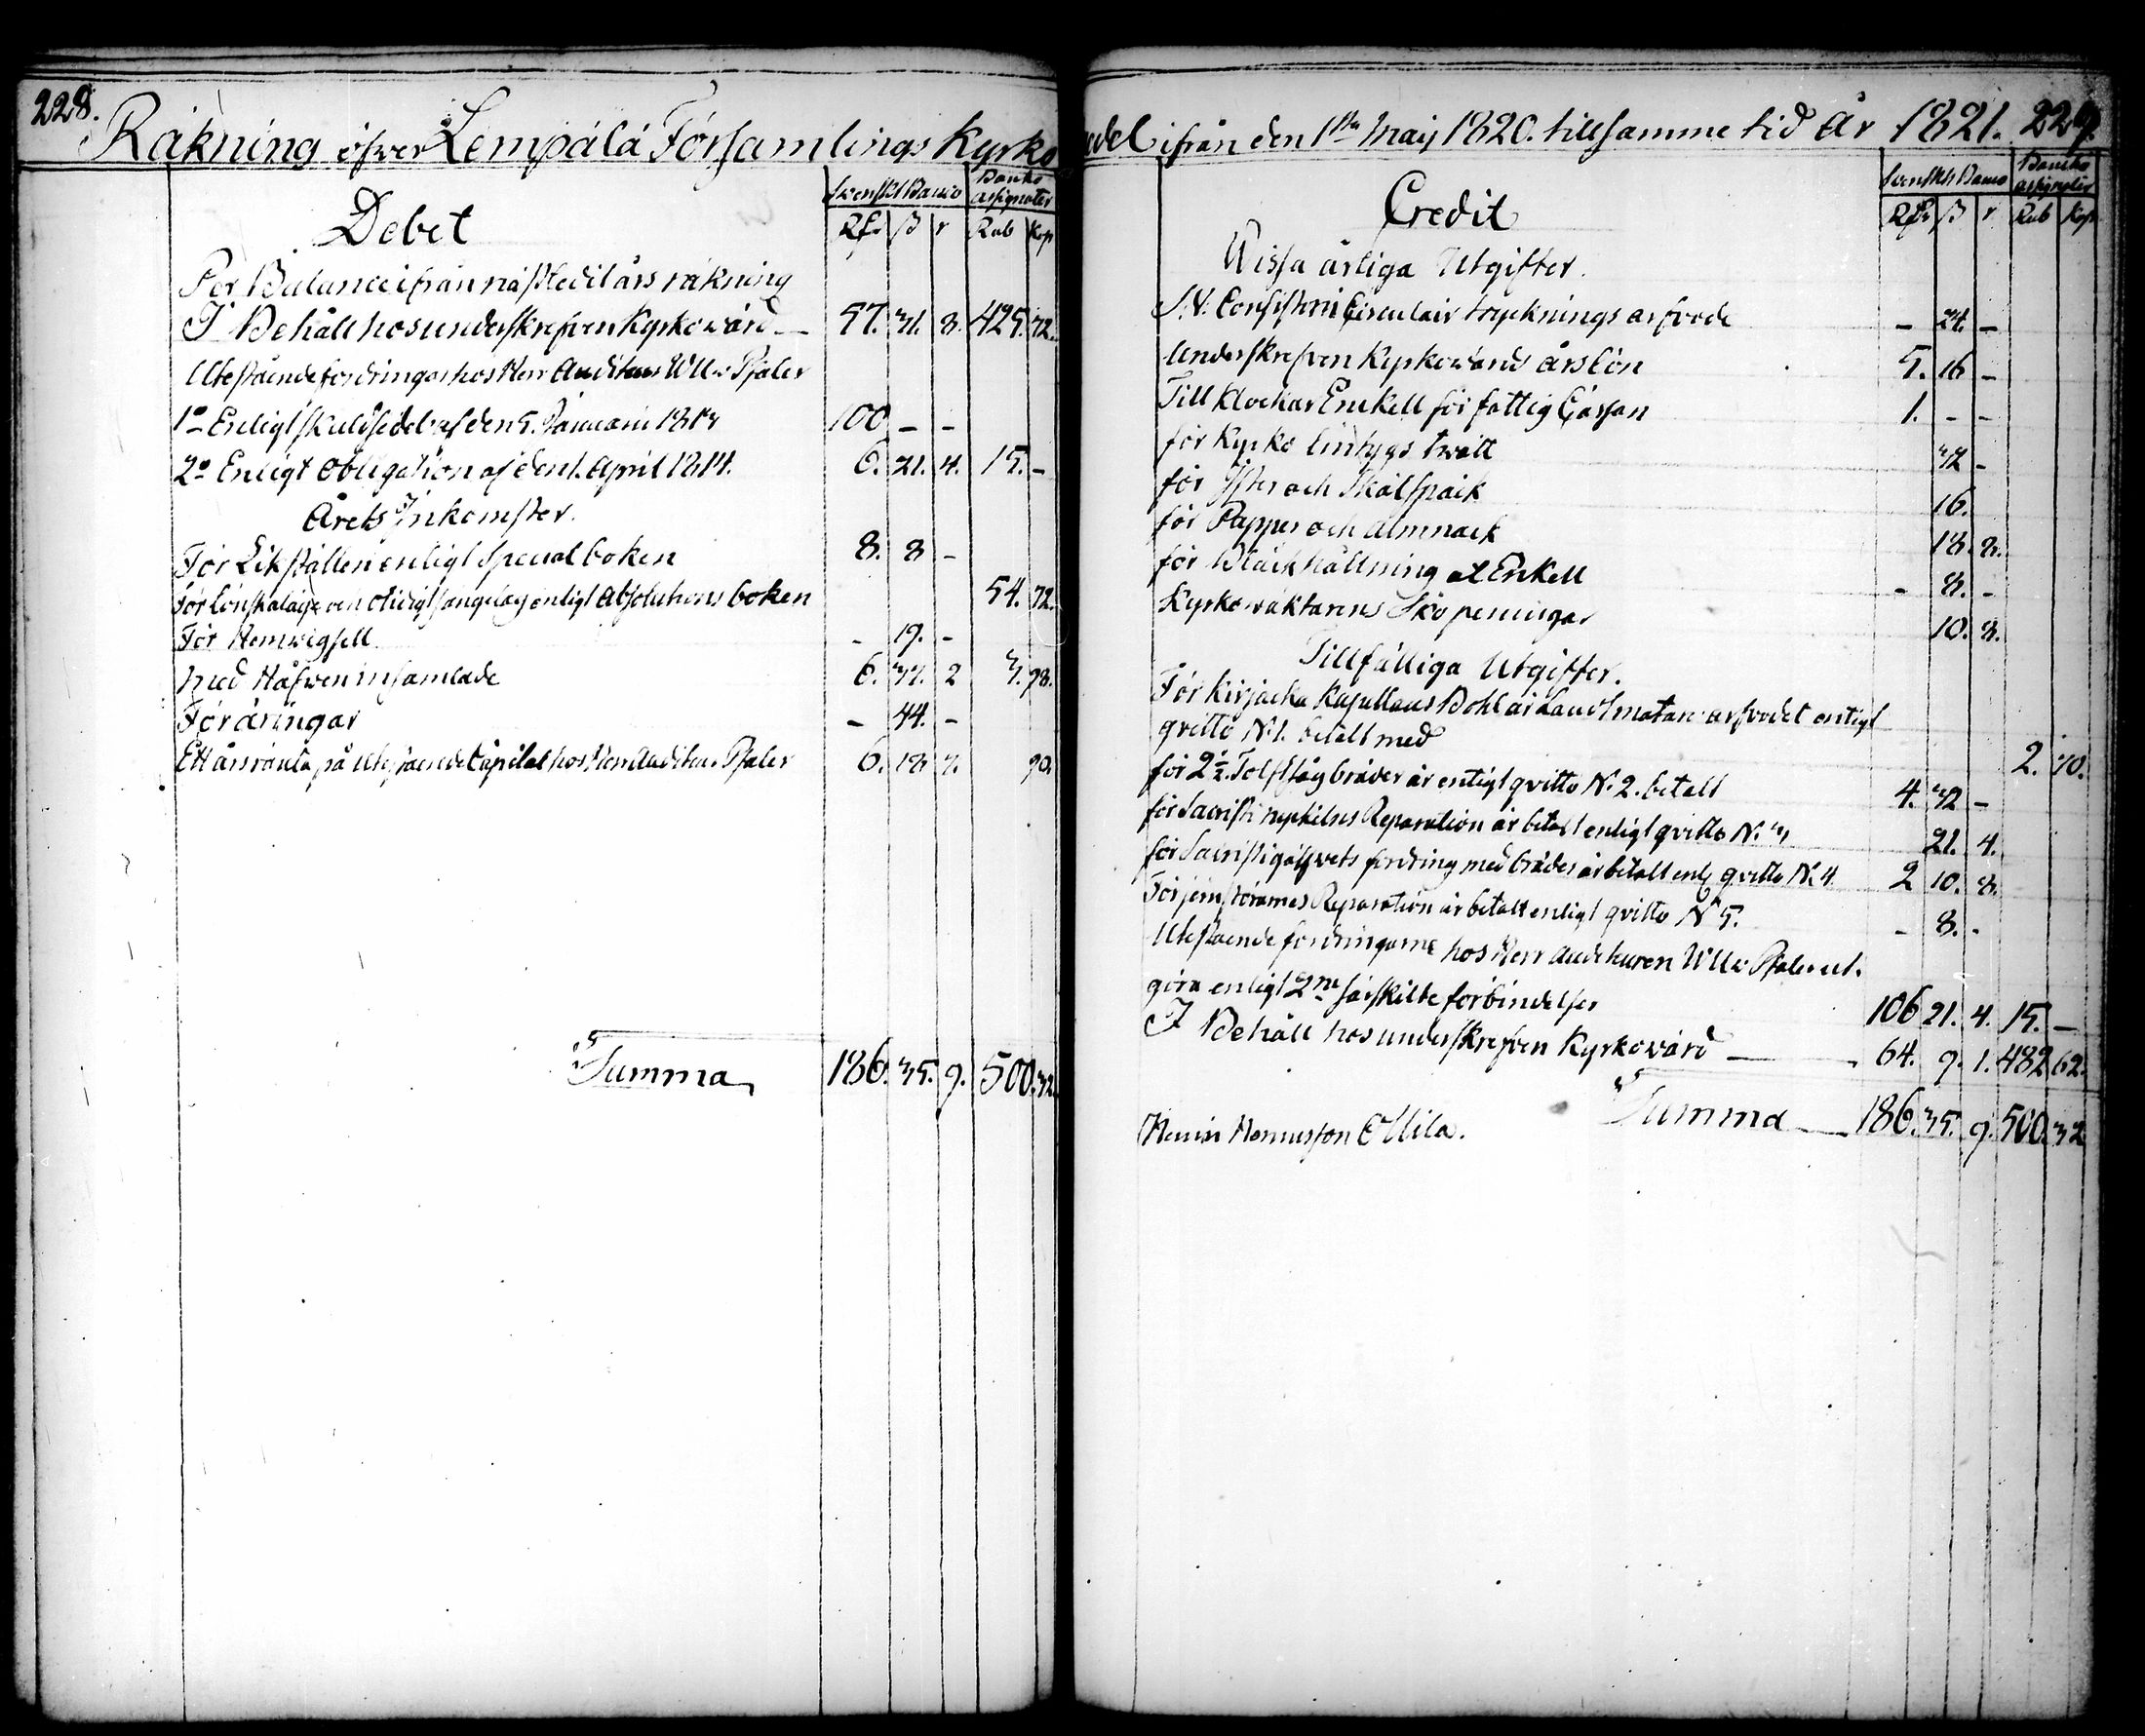 228.
Räkning öfwer Lempälä Församlings Kyrko
Svenskt Banco Banko assignater
Debet Rd. ß r Rub Kop
Per Balance ifrån nästledit års räkning
I Behåll hos underskrefven Kyrkowärd — 57. 31. 8. 425. 72.
Utestående fordringar hos Herr Auditeur W Pfaler
1o Enligt skuldsedel af den 5. Januarii 100 — —
2o Enligt Obligation af den 1. April 1814. 6. 21. 4. 15. —
Årets Inkomster.
För Likställen enligt Special boken 8. 8 —
För Lönskaläge och otidigt sängelag enligt Absolutions boken 54. 72.
För Hemwigsell — 19. —
med Håfwen insamlade 6. 37. 2 3. 98.
Föräringar — 44. —
Ett års ränta på utestående Capital hos Herr Auditeur Pfaler 6. 18 7. 90.
Summa 186. 35. 9. 500. 32.
del ifrån den 1sta Maij 1820. till samme tid År 1821. 229.
Svenskt Banco Banko assignater
Credit Rd. ß r Rub Kop
Wissa årliga Utgifter.
V. Consistorii Circulair trycknings arfvode — 24. —
Underskrefven Kyrkowärds årslön 5. 16 —
Till Klockar Enekell för fattig 1. — —
för Kyrko lintygs twätt 32 —
för Ister och 16.
för Papper och Almnack 18. 8.
för Bläckhållning at Enkell — 8. —
Kyrkowäktarens Sko peningar 10. 8.
Tillfälliga Utgifter.
För Kirjacka Kapellans Bohl är Landtmätare arfvodet enligt
qvitto N:1. betalt med 2. 70.
för 2½. Tolft såg bräder är enligt qvitto N:2. betalt 4. 32 —
för Sacristi nyckelns Reparation är betalt enligt qvitto N:3 21. 4.
för Sacristigålfvets fordring med bräder är betalt enl. qvitto N:4 2 10. 8.
För Reparation är betalt enligt qvitto N 5. — 8. —
Utestående fordringarne hos Herr Auditeuren W Pfaler ut-
göra enligt 2ne särskilte förbindelser 106 21. 4. 15. —
I Behåll hos underskrefven Kyrkowärd — 64. 9. 1. 482 62.
Summa — 186. 35. 9. 500. 32
Henrik Henricsson Ollila.